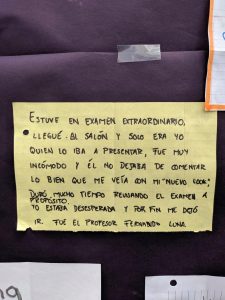 ESTUVE EN EXAMEN EXTRAORDINARIO,
LLEGUÉ AL SALÓN Y SOLO ERA YO
QUIEN LO IBA A PRESENTAR, FUE MUY
INCÓMODO Y ÉL NO DEJABA DE COMENTAR
LO BIEN QUE ME VEÍA CON MI "NUEVO LOOK",
DURÓ MUCHO TIEMPO REVISANDO EL EXAMEN A
PROPÓSITO,
YO ESTABA DESESPERADA Y POR FIN ME DEJÓ
IR. FUE EL PROFESOR FERNANDO LUNA.